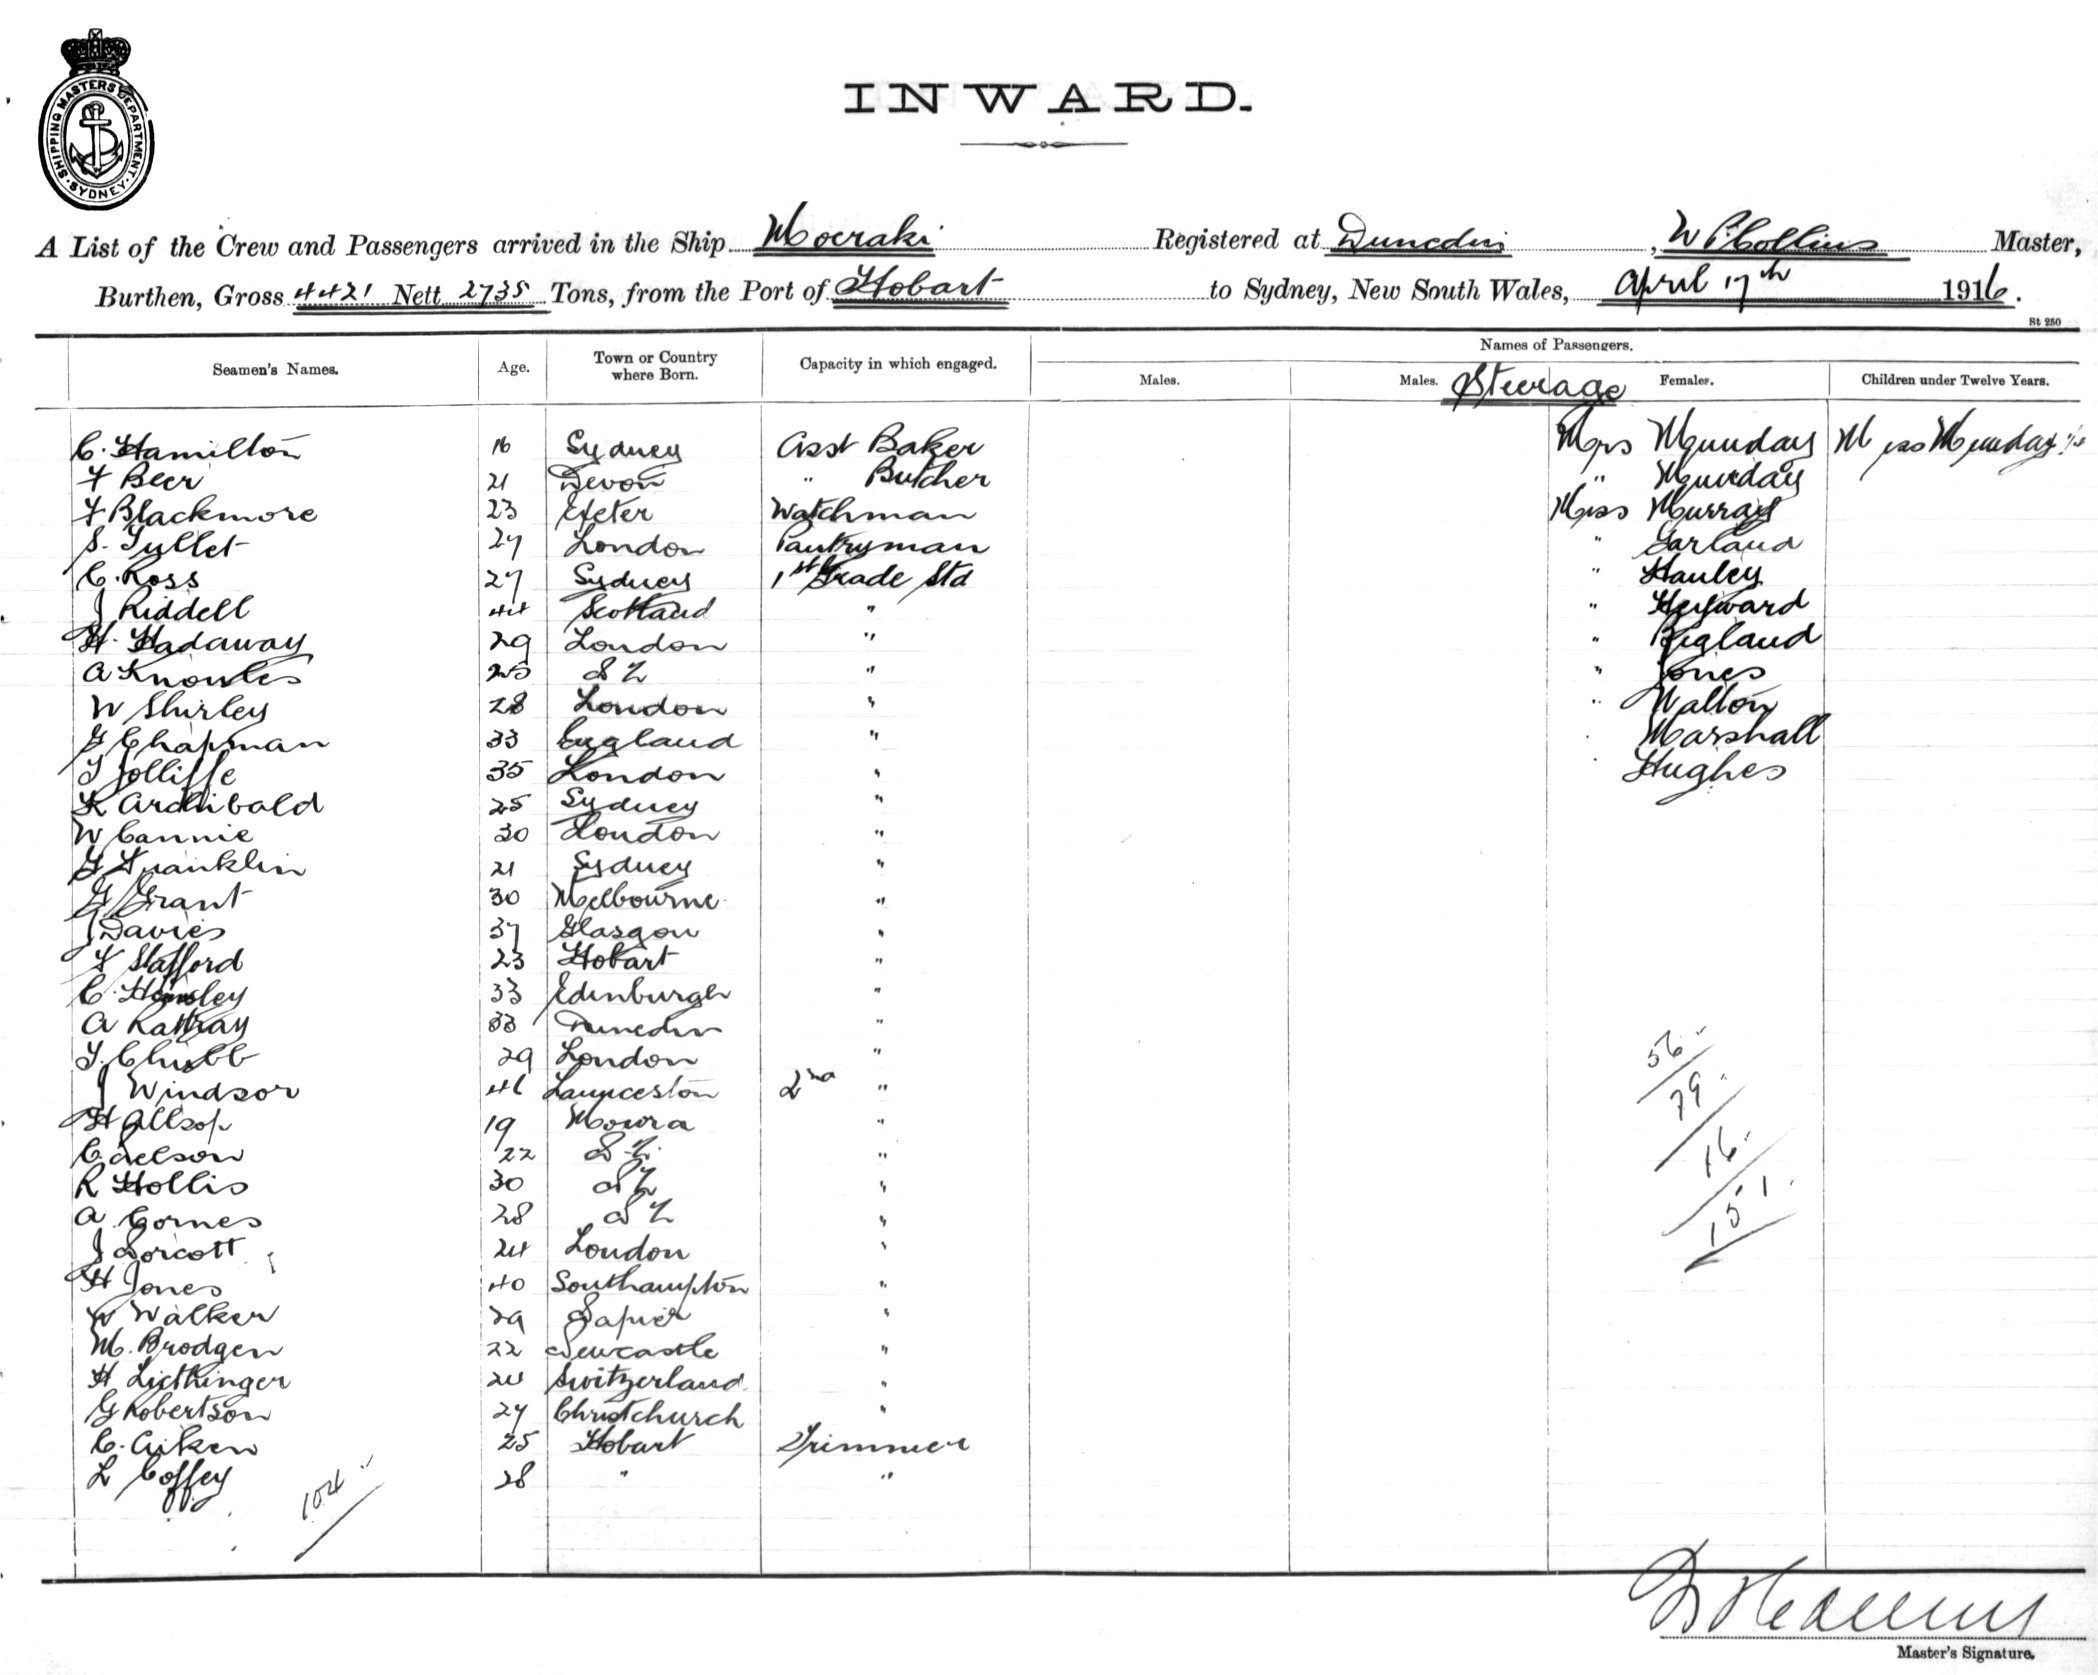 SHIPPING MASTERS DEPARTMENT
SYDNEY
INWARD.
A List of the Crew and Passengers arrived in the Ship Moeraki Registered at Dunedin, W Collins Master,
Burthen, Gross 4421 Nett 2735 Tons, from the Port of Hobart to Sydney, New South Wales, April 17th 1916.
St 250
Seamen's Names. Age. Town or Country where Born. Capacity in which engaged. Names of Passengers.
Males. Males. Steerage Females. Children under Twelve Years.
C. Hamilton 16 Sydney Asst Baker Mrs Munday Miss Munday
F Beer 21 Devon " Butcher " Munday
F Blackmore 23 Exeter Watchman Miss Murray
S. Tullet 27 London Pantryman " Garland
C. Ross 27 Sydney 1st Grade Std " Hanley
J Riddell 44 Scotland " " Heyward
H. Hadaway 29 London " " Bigland
A Knowles 25 N Z " " Jones
W Shirley 28 London " " Walton
G Chapman 33 England " " Marshall
T Jolliffe 35 London " " Hughes
K Archibald 25 Sydney "
W Cannie 30 London "
G Franklin 21 Sydney "
G Grant 30 Melbourne "
J Davies 37 Glasgow "
F Stafford 23 Hobart "
C. Hemsley 33 Edinburgh "
A Rattray 33 Dunedin "
T. Chubb 29 London "
J Windsor 46 Launceston 2nd "
H Allsop 19 Mowra "
C. Nelson 22 N Z. "
R Hollis 30 N Z "
A Cornes 28 N Z "
J Norcott 24 London "
H Jones 40 Southampton "
W Walker 29 Napier "
M. Brodgen 22 Newcastle "
H Licthinger 24 Switzerland "
G Robertson 27 Christchurch "
C. Aiken 25 Hobart Trimmer
L Coffey 28 " "
104
56
79
16
151
Master's Signature.